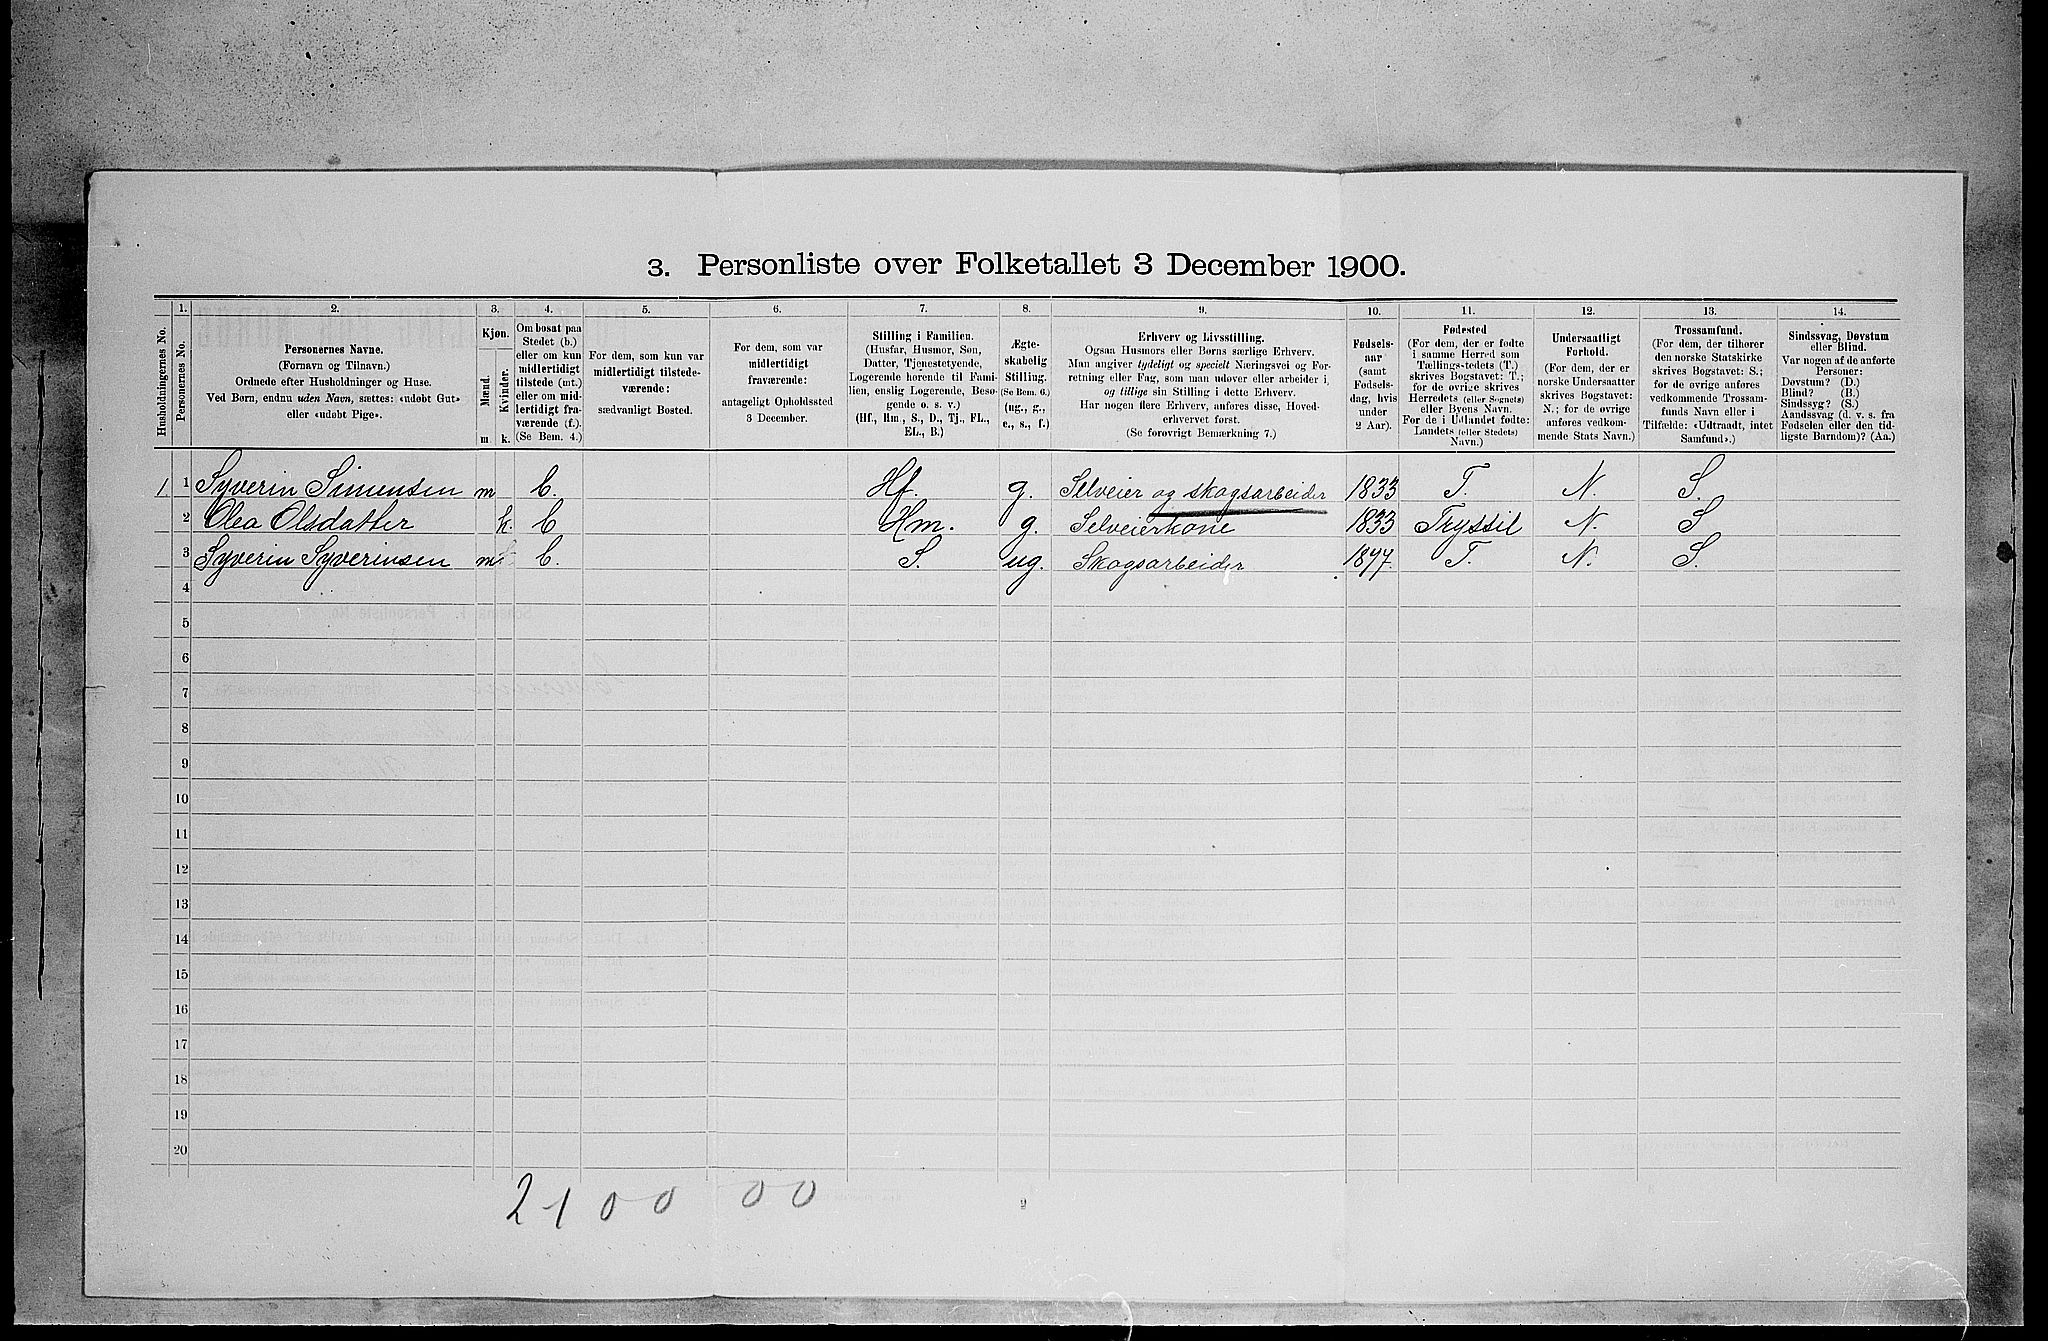 3. Personliste over Folketallet 3 December 1900.
1. 2. 3. 4. 5. 6. 7. 8. 9. 10. 11. 12. 13. 14.
Husholdningernes No.
Personernes No.
Personernes Navne.
(Fornavn og Tilnavn.)
Ordnede efter Husholdninger og Huse.
Ved Børn, endnu uden Navn, sættes: «udøbt Gut»
eller «udøbt Pige».
Kjøn.
Mænd.
Kvinder.
m. k.
Om bosat paa
Stedet (b.)
eller om kun
midlertidigt
tilstede (mt.)
eller om mid-
lertidigt fra-
værende (f.).
(Se Bem. 4.)
For dem, som kun var
midlertidigt tilstede-
værende:
sædvanligt Bosted.
For dem, som var
midlertidigt
fraværende:
antageligt Opholdssted
3 December.
Stilling i Familien.
(Husfar, Husmor, Søn,
Datter, Tjenestetyende,
Logerende hørende til Fami-
lien, enslig Logerende, Besø-
gende o. s. v.)
(Hf., Hm., S., D., Tj., FL.,
EL., B.)
Ægte-
skabelig
Stilling.
(Se Bem. 6.)
(ug., g.,
e., s., f.)
Erhverv og Livsstilling.
Ogsaa Husmors eller Børns særlige Erhverv.
Man angiver tydeligt og specielt Næringsvei og For-
retning eller Fag, som man udøver eller arbeider i,
og tillige sin Stilling i dette Erhverv.
Har nogen flere Erhverv, anføres disse, Hoved-
erhvervet først.
(Se forøvrigt Bemærkning 7.)
Fødsels-
aar
(samt
Fødsels-
dag, hvis
under
2 Aar).
Fødested
(For dem, der er fødte
i samme Herred som
Tællings-tedets (T.)
skrives Bogstavet: T.;
for de øvrige skrives
Herredets (eller Sognets)
eller Byens Navn.
For de i Udlandet fødte:
Landets (eller Stedets)
Navn.)
Undersaatligt
Forhold.
(For dem, der er
norske Undersaatter
skrives Bogstavet:
N.; for de øvrige
anføres vedkom-
mende Stats Navn.)
Trossamfund.
(For dem, der tilhører
den norske Statskirke
skrives Bogstavet: S.;
for de øvrige anføres
vedkommende Trossam-
funds Navn eller i
Tilfælde: «Udtraadt, intet
Samfund».)
Sindssvag, Døvstum
eller Blind.
Var nogen af de anførte
Personer:
Døvstum? (D.)
Blind? (B.)
Sindssyg? (S.)
Aandssvag (d. v. s. fra
Fødselen eller den tid-
ligste Barndom)? (Aa.)
1 1 Syverin Simensen m b. Hf. g. Selveier og skogsarbeider 1833 T. N. S.
2 Olea Olsdatter k. b Hm. g. Selveierkone 1833 Tryssil N. S
3 Syverin Syverinsen m b. S. ug. Skogsarbeider 1877. T. N. S.
4
5
6
7
8
9
10
11
12
13
14
15
16
17
18
19
20
2 1 0 0 0 0